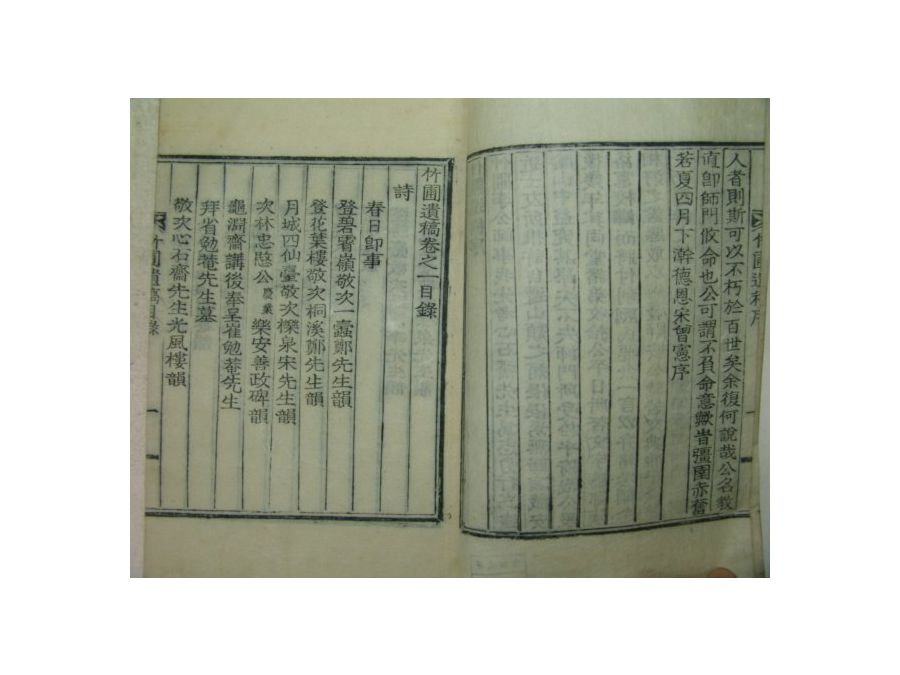 人者則斯可以不朽於百世矣余復何說哉公名毅
植卽師門攸命也公可謂不負命意歟昔彊圉赤奮
若夏四月下澣德恩宋曾憲序
竹圃遺稿序
竹圃遺稿卷之一目錄
詩
春日卽事
登碧霄嶺敬次一蠹鄭先生韻
登花葉樓敬次桐溪鄭先生韻
月城四仙臺敬次櫟泉宋先生韻
次林忠愍公慶業樂安善政碑韻
龜淵齋講後奉呈崔勉菴先生
拜省勉菴先生墓
敬次心石齋先生光風樓韻
竹圃遺稿目錄
一